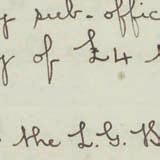 sub-offic
of £4
the L.G. B